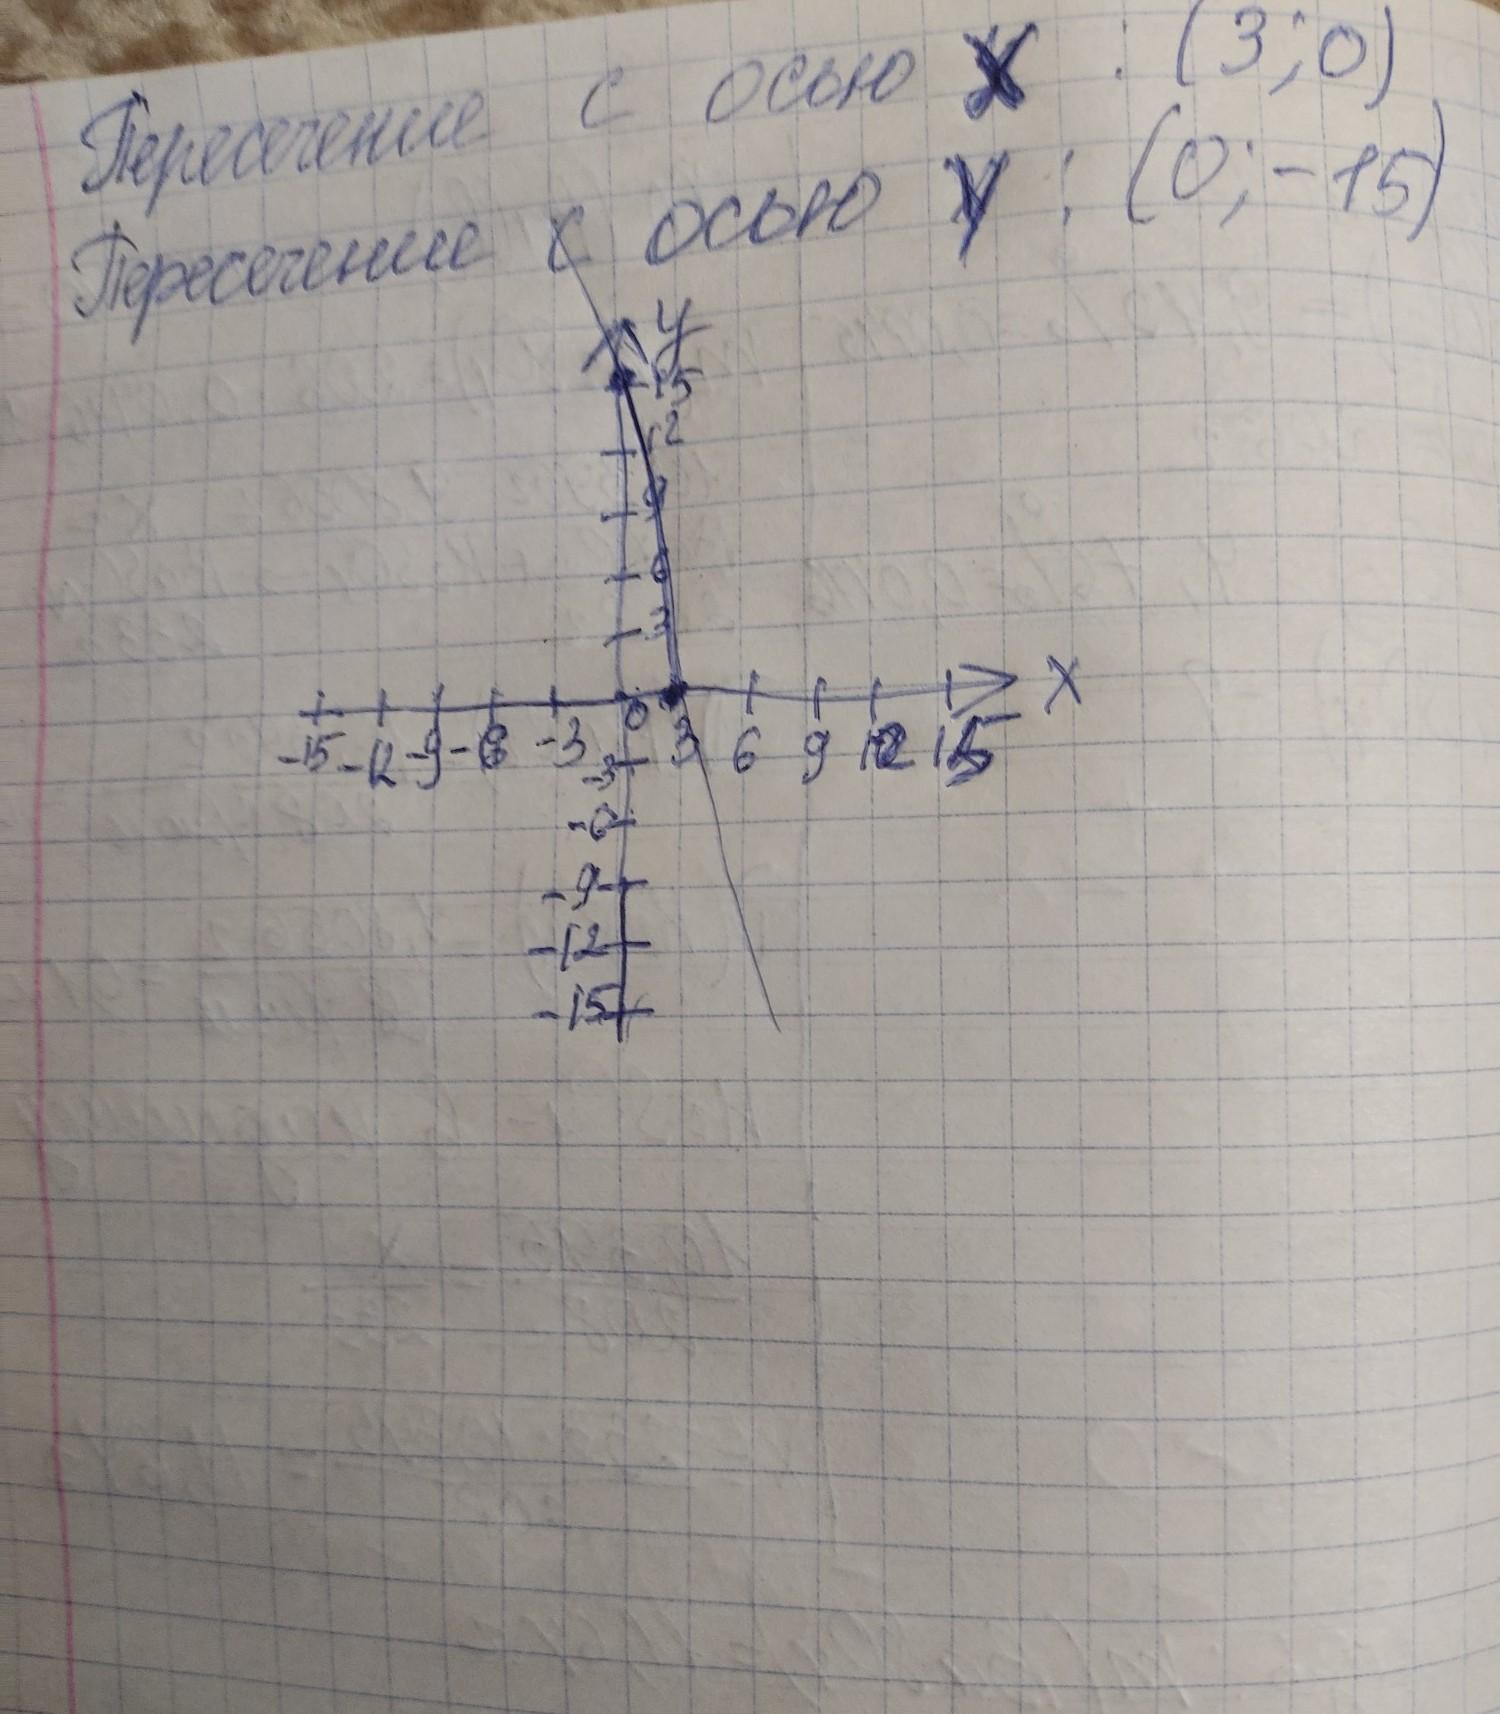 Пересечение с осью X : (3; 0)
Пересечение с осью Y : (0; -15)
y
15
12
9
6
3
X
-15 -12 -9 -6 -3 0 3 6 9 12 15
-3
-6
-9
-12
-15